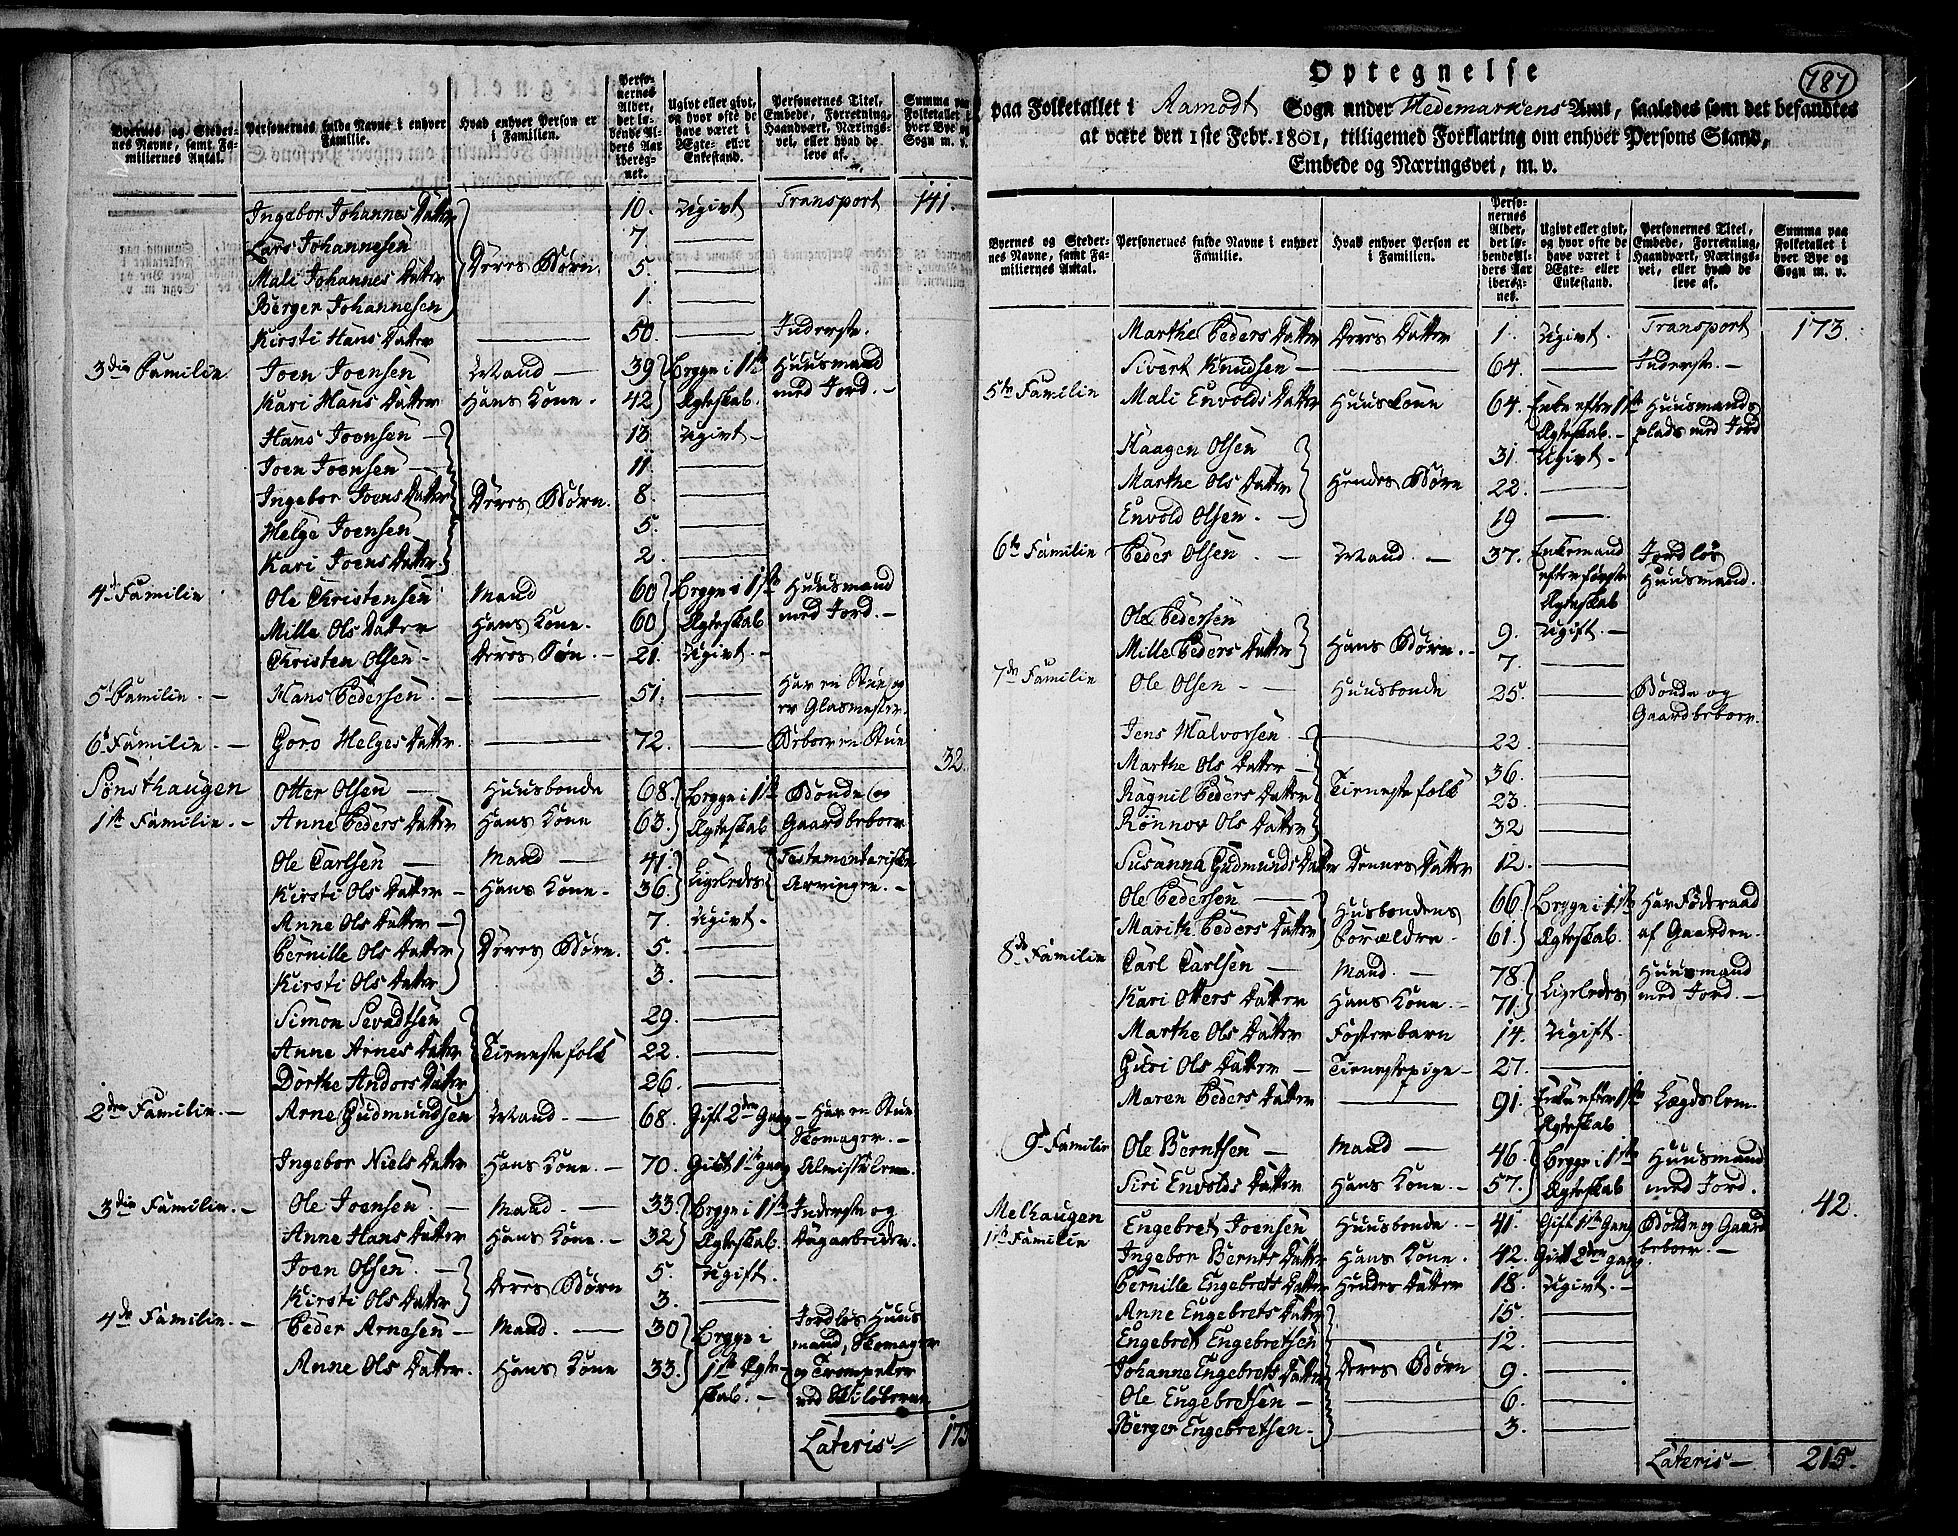 Byernes og Steder- nes Navne, samt Fa- miliernes Antal. | Personernes fulde Navne i enhver Familie. | Hvad enhver Person er i Familien. | Perso- nernes Alder, det lø- bende Al- ders Aar iberegnet. | Ugivt eller givt, og hvor ofte de have været i Ægte- eller Enkestand. | Personernes Titel, Embede, Forretning, Haandværk, Nærings- vei, eller hvad de leve af. | Summa paa Folketallet i hver Bye og Sogn m. v.
Transport 141.
Ingebor Johannes Datter 10. Ugivt
Lars Johannesen 7.
Deres Børn.
Mali Johannes Datter 5.
Berger Johannesen 1.
Kirsti Hans Datter 50. Inderste.
3die Familie. Joen Joensen Mand 39 Begge i 1ste Huusmand
Kari Hans Datter Hans Kone. 42 Ægteskab. med Jord.
Hans Joensen 13 Ugivt
Joen Joensen 11.
Ingebor Joens Datter Deres Børn. 8.
Helge Joensen 5.
Kari Joens Datter 2.
4de Familie Ole Christensen Mand 60 Begge i 1ste Huusmand
Mille Ols Datter Hans Kone. 60 Ægteskab med Jord.
Christen Olsen Deres Søn. 21. Ugivt.
5te Familie. Hans Pedersen. 51. Har en Stue og
er Glasmester.
6te Familie. Goro Helges Datter. 72. Beboer en Stue
32.
Sønsthaugen Otter Olsen Huusbonde 68. Begge i 1ste Bonde og
1ste Familie. Anne Peders Datter Hans Kone 63. Ægteskab Gaardbeboer
Ole Carlsen Mand 41 Ligeledes Testamentariske
Kirsti Ols Datter Hans Kone. 36. Arvinger.
Anne Ols Datter 7. Ugivt.
Pernille Ols Datter Deres Børn. 5.
Kirsti Ols Datter 3.
Simon Sevadtsen 29.
Anne Arnes Datter Tienestefolk 22.
Dorthe Anders Datter 26.
2den Familie. Arne Gudmundsen Mand 68. Gift 2den Gang Har en Stue
Skomager.
Ingebor Niels Datter Hans Kone. 70. Gift 1ste gang Almisselem.
3die Familie. Ole Joensen. Mand. 33 Begge i 1ste Inderste og
Anne Hans Datter Hans Kone. 32 Ægteskab. Dagarbeider.
Joen Olsen. 5. Ugift.
Deres Børn
Kirsti Ols Datter 3.
4de Familie. Peder Arnesen Mand. 30 Begge i Jordløs Huus
mand, Skomager
Anne Ols Datter. Hans Kone 33. 1ste Ægte- og Trompeter
skab. ved
Lateris 173
181
Optegnelse
paa Folketallet i Aamodt Sogn under Hedemarkens Amt, saaledes som det befandtes
at være den 1ste Febr. 1801, tilligemed Forklaring om enhver Persons Stand,
Embede og Næringsvei, m. v.
Byernes og Steder- nes Navne, samt Fa- miliernes Antal. | Personernes fulde Navne i enhver Familie. | Hvad enhver Person er i Familien. | Perso- nernes Alder, det lø- bende Al- ders Aar ibereg- net. | Ugivt eller givt, og hvor ofte de have været i Ægte- eller Enkestand. | Personernes Titel, Embede, Forretning, Haandværk, Nærings- vei, eller hvad de leve af. | Summa paa Folketallet i hver Bye og Sogn m. v.
Transport 173.
Marthe Peders Datter Deres Datter 1. Ugivt.
Sivert Knudsen 64. Inderste.
5te Familie Mali Envolds Datter Huuskone 64. Enke efter 1ste Huusmands
Ægteskab. plads med Jord
Haagen Olsen 31. Ugivt
Marthe Ols Datter Hendes Børn 22.
Envold Olsen. 19
6te Familie Peder Olsen. Mand. 37. Enkemand Jordløs
efter første Huusmand.
Ægteskab
Ole Pedersen 9. Ugift.
Mille Peders Datter Hans Børn. 7.
7de Familie Ole Olsen Huusbonde 25. Bonde og
Gaardbeboer.
Jens Halvorsen. 22.
Marthe Ols Datter 36.
Ragnil Peders Datter Tienestefolk 23.
Rønnov Ols Datter 32
Susanna Gudmunds Datter Dennes Datter 12.
Ole Pedersen 66 Begge i 1ste Har Føderaad
Husbondens
Marith Peders Datter Forældre. 61. Ægteskab. af Gaarden.
8de Familie Carl Carlsen Mand. 78 Huusmand
Kari Otters Datter Hans Kone. 71 Ligeledes med Jord.
Marthe Ols Datter Fosterbarn 14. Ugift.
Guri Ols Datter Tienestepige 27.
Maren Peders Datter 91. Enke efter 1ste Lægdslem.
Ægteskab
9de Familie Ole Berntsen Mand 46. Begge i 1ste Huusmand
Siri Envolds Datter Hans Kone. 57. Ægteskab med Jord.
42.
Melhaugen Engebret Joensen Huusbonde 41. Gift 1ste Gang Bonde og Gaard
1ste Familie Ingebor Bernts Datter Hans Kone. 42. Gift 2den gang. beboer.
Pernille Engebrets Datter Hendes Datter 18. Ugivt.
Anne Engebrets Datter 15.
Engebret Engebretsen 12.
Johanne Engebrets Datter Deres Børn 9.
Ole Engebretsen 6.
Berger Engebretsen. 3.
Lateris 215.